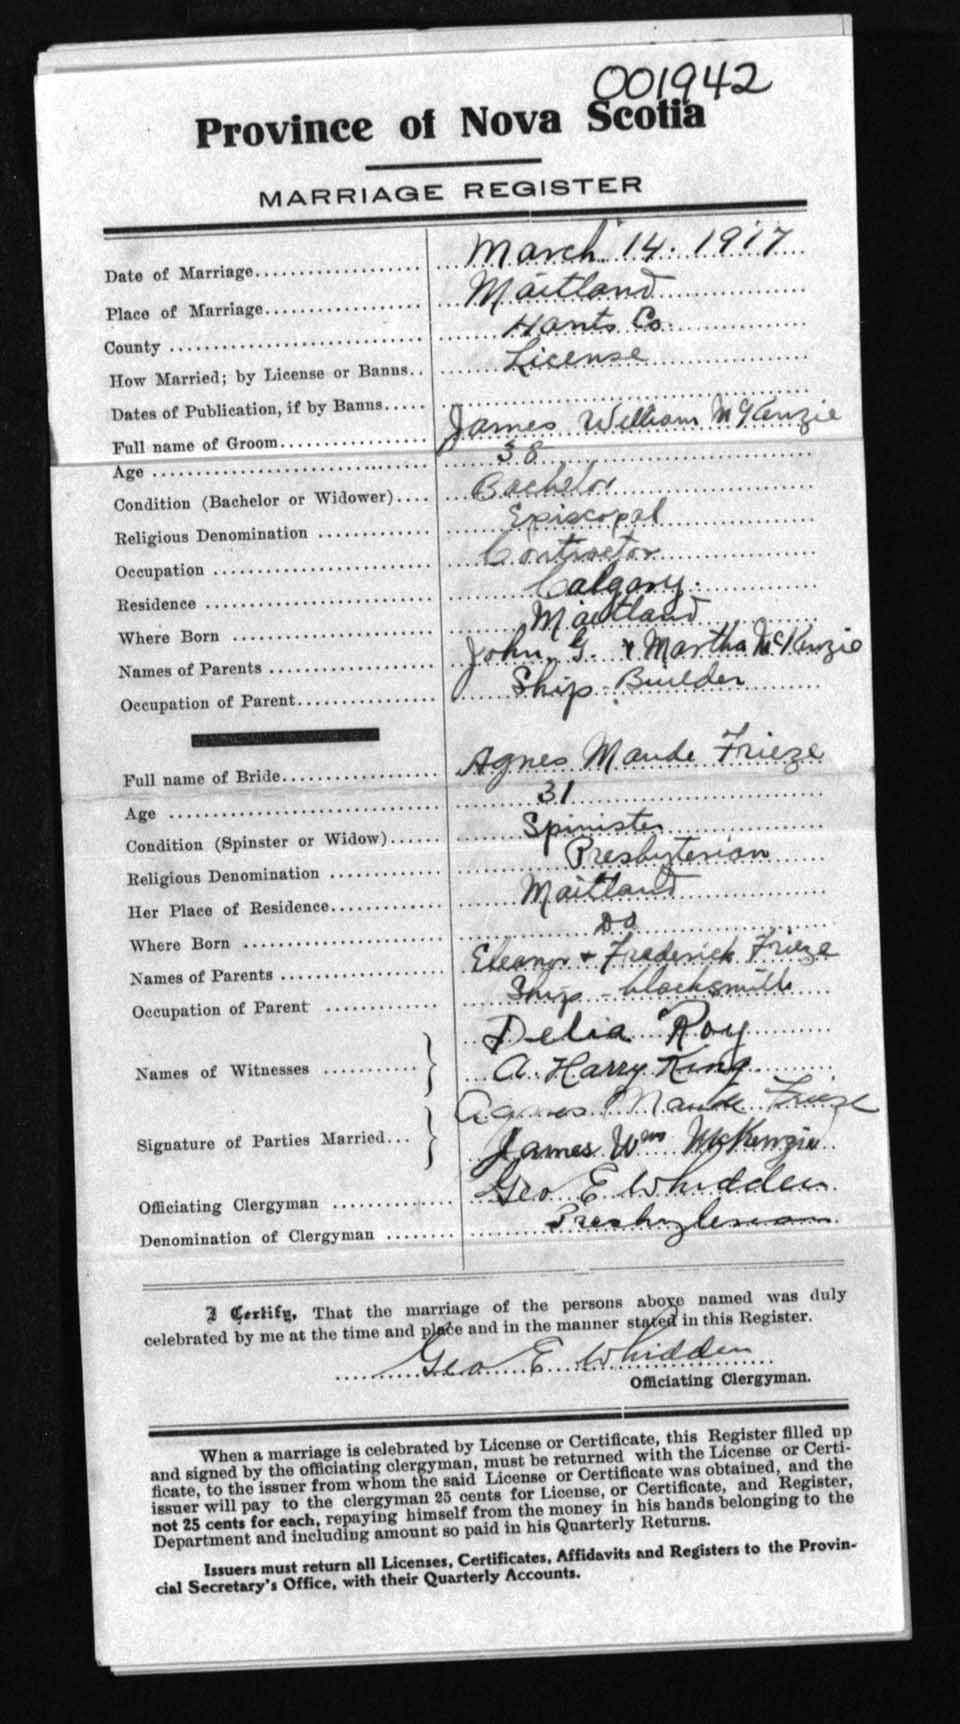 001942
Province of Nova Scotia
MARRIAGE REGISTER
Date of Marriage March 14. 1917
Place of Marriage Maitland
County Hants Co.
How Married; by License or Banns License
Dates of Publication, if by Banns
Full name of Groom James William McKenzie
Age 38
Condition (Bachelor or Widower) Bachelor
Religious Denomination Episcopal
Occupation Contractor
Residence Calgary.
Where Born Maitland
Names of Parents John G. & Martha McKenzie
Occupation of Parent Ship-Builder
Full name of Bride Agnes Maude Frieze
Age 31
Condition (Spinster or Widow) Spinister
Religious Denomination Presbyterian
Her Place of Residence Maitland
Where Born Do
Names of Parents Eleanor + Frederick Frieze
Occupation of Parent Ship-blacksmith
Names of Witnesses Delia Roy
A. Harry King
Signature of Parties Married Agnes Maude Frieze
James Wm McKenzie
Officiating Clergyman Geo E Whidden
Denomination of Clergyman Presbyterian
I Certify, That the marriage of the persons above named was duly
celebrated by me at the time and place and in the manner stated in this Register.
Geo E Whidden
Officiating Clergyman.
When a marriage is celebrated by License or Certificate, this Register filled up
and signed by the officiating clergyman, must be returned with the License or Certi-
ficate, to the issuer from whom the said License or Certificate was obtained, and the
issuer will pay to the clergyman 25 cents for License, or Certificate, and Register,
not 25 cents for each, repaying himself from the money in his hands belonging to the
Department and including amount so paid in his Quarterly Returns.
Issuers must return all Licenses, Certificates, Affidavits and Registers to the Provin-
cial Secretary's Office, with their Quarterly Accounts.